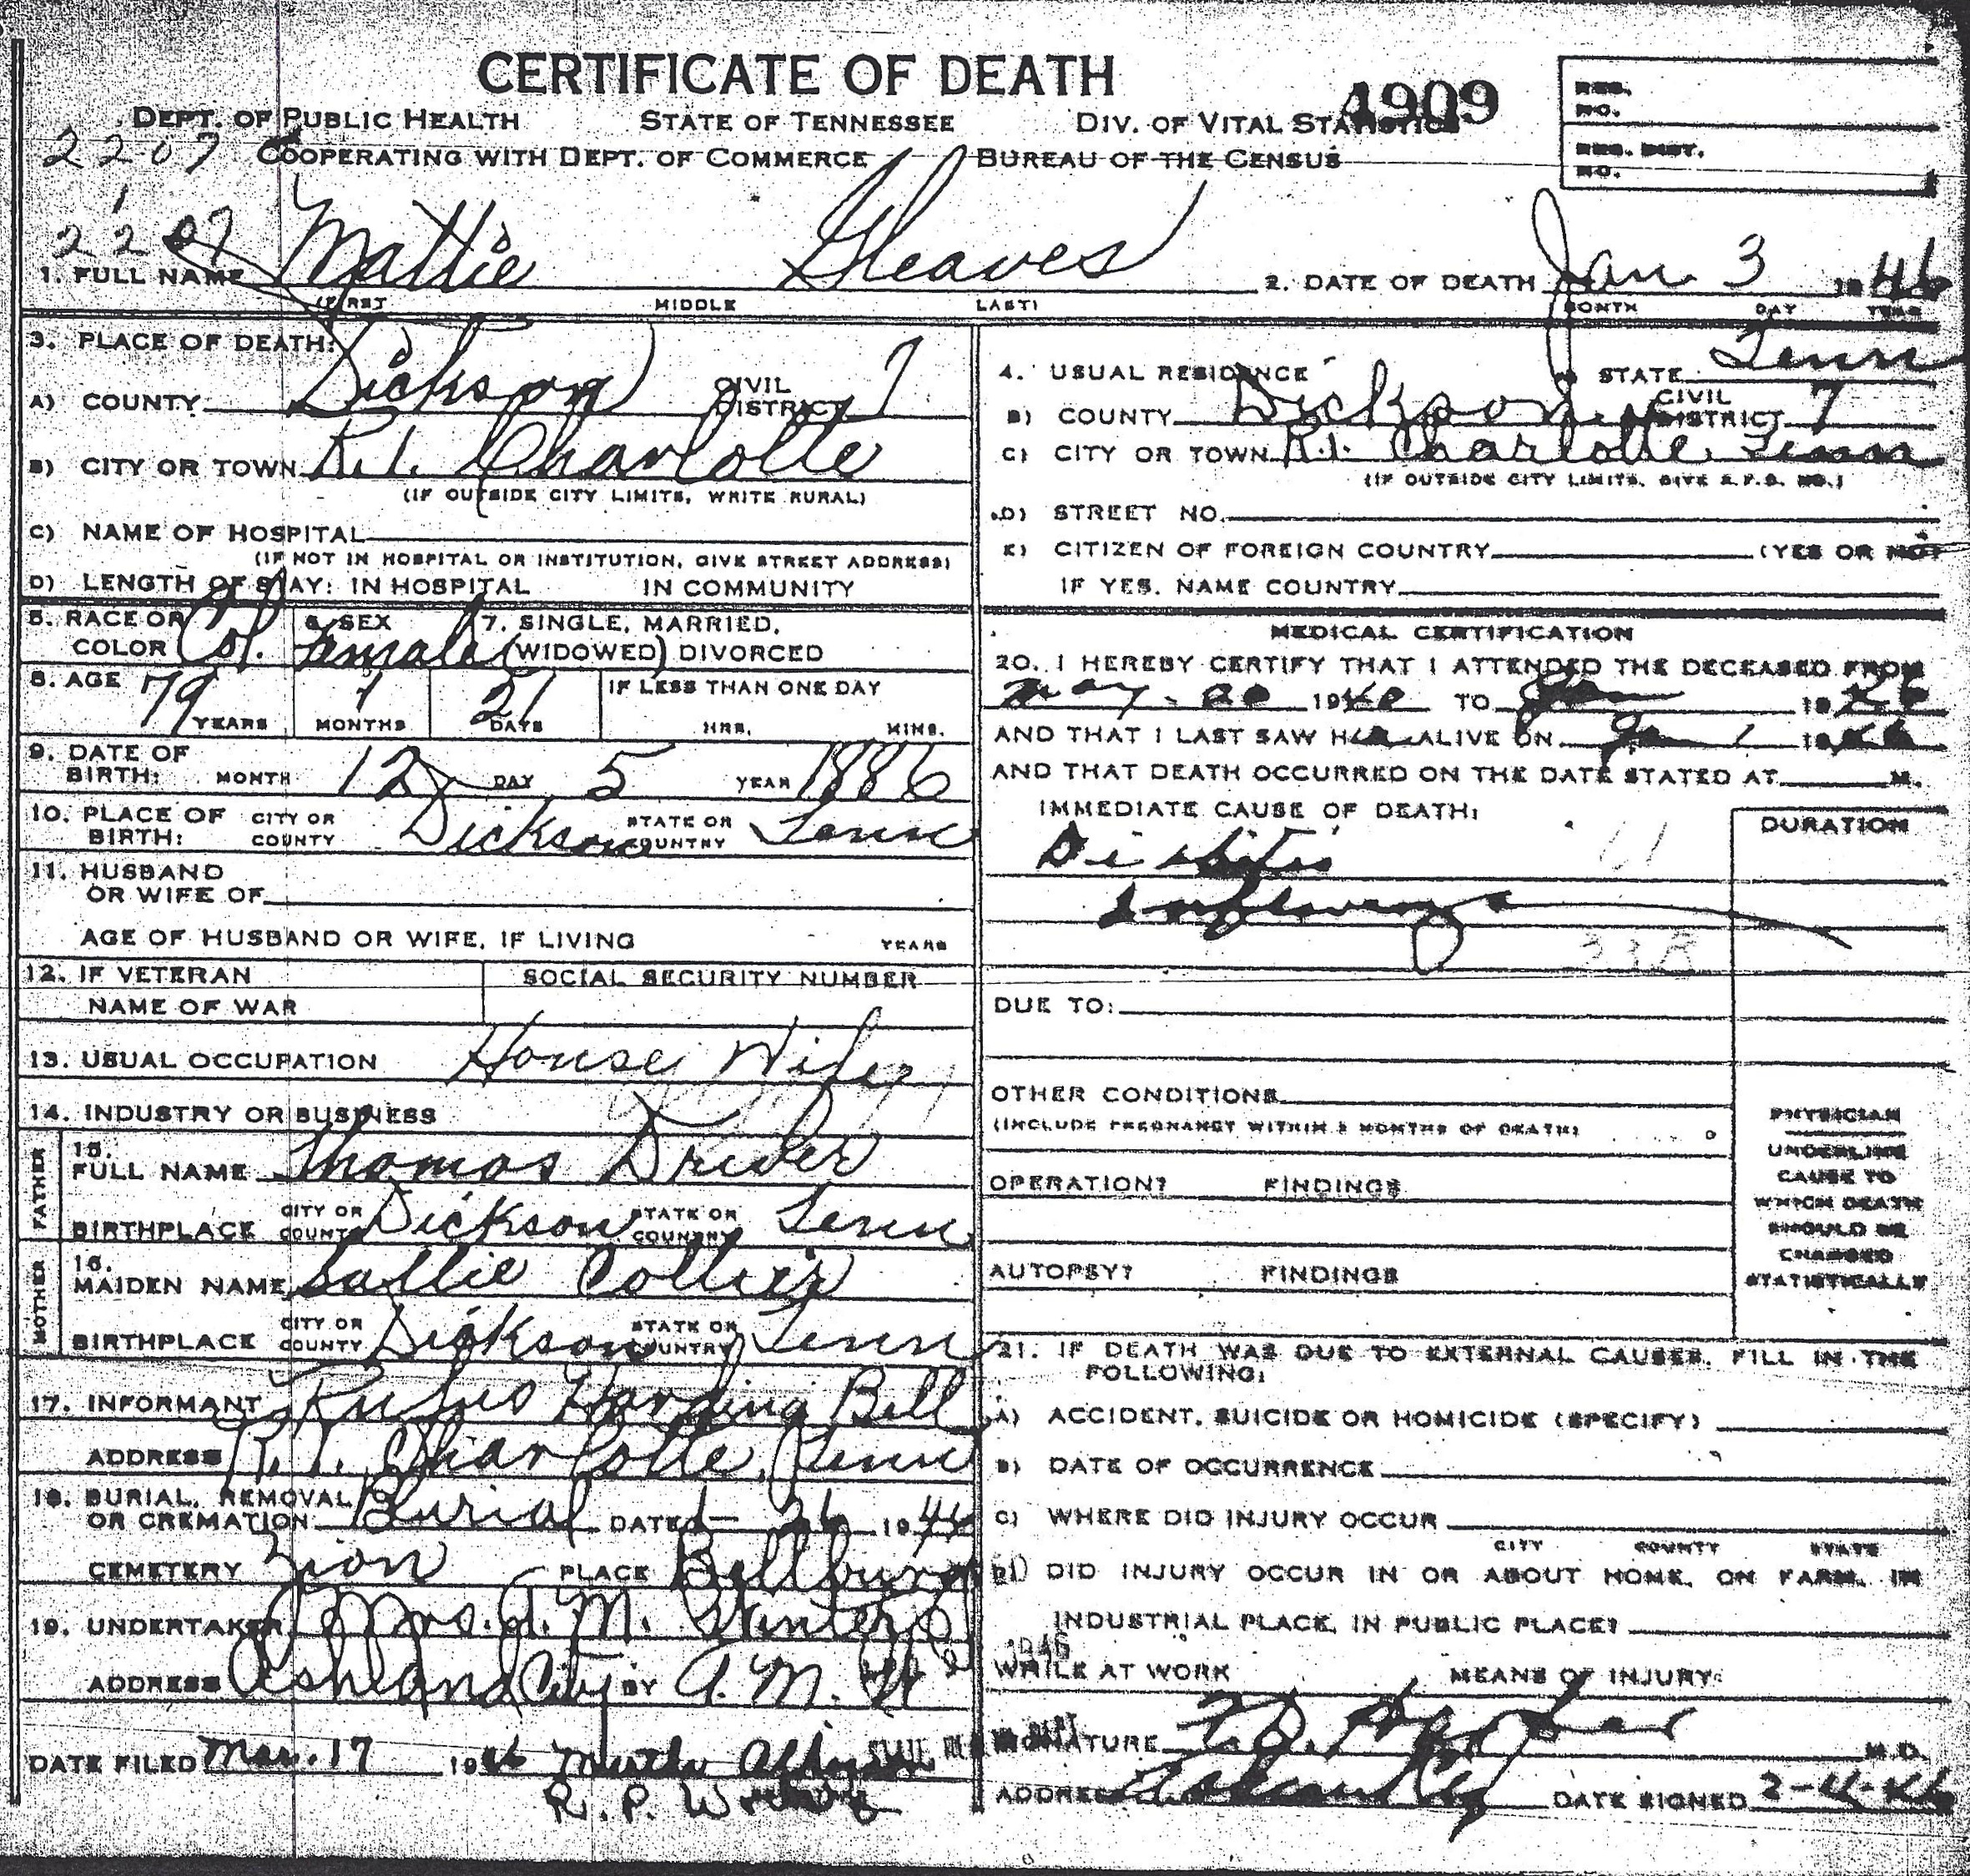 CERTIFICATE OF DEATH
4909
DEPT. OF PUBLIC HEALTH STATE OF TENNESSEE DIV. OF VITAL STATISTICS
2207 COOPERATING WITH DEPT. OF COMMERCE BUREAU OF THE CENSUS
REG. NO.
REG. DIST. NO.
1
2207
1. FULL NAME Mattie Gleaves 2. DATE OF DEATH Jan 3 1946
(FIRST MIDDLE LAST) MONTH DAY YEAR
3. PLACE OF DEATH:
A) COUNTY Dickson CIVIL DISTRICT 7
B) CITY OR TOWN R.1. Charlotte
(IF OUTSIDE CITY LIMITS, WRITE RURAL)
C) NAME OF HOSPITAL
(IF NOT IN HOSPITAL OR INSTITUTION, GIVE STREET ADDRESS)
D) LENGTH OF STAY: IN HOSPITAL IN COMMUNITY
4. USUAL RESIDENCE A) STATE Tenn
B) COUNTY Dickson CIVIL DISTRICT 7
C) CITY OR TOWN R.1. Charlotte, Tenn
(IF OUTSIDE CITY LIMITS, GIVE R.F.D. NO.)
D) STREET NO.
E) CITIZEN OF FOREIGN COUNTRY (YES OR NO)
IF YES, NAME COUNTRY
5. RACE OR COLOR Col. 6. SEX Female 7. SINGLE, MARRIED, (WIDOWED) DIVORCED
8. AGE 79 YEARS 1 MONTHS 21 DAYS IF LESS THAN ONE DAY HRS. MINS.
9. DATE OF BIRTH: MONTH 12 DAY 5 YEAR 1886
10. PLACE OF BIRTH: CITY OR COUNTY Dickson STATE OR COUNTRY Tenn
11. HUSBAND OR WIFE OF
AGE OF HUSBAND OR WIFE, IF LIVING YEARS
12. IF VETERAN NAME OF WAR SOCIAL SECURITY NUMBER
13. USUAL OCCUPATION House Wife
14. INDUSTRY OR BUSINESS
FATHER
15. FULL NAME Thomas Driver
BIRTHPLACE CITY OR COUNTY Dickson STATE OR COUNTRY Tenn
MOTHER
16. MAIDEN NAME Sallie Collier
BIRTHPLACE CITY OR COUNTY Dickson STATE OR COUNTRY Tenn
17. INFORMANT Rufus Harding Bell
ADDRESS R.1. Charlotte, Tenn
18. BURIAL, REMOVAL OR CREMATION Burial DATE 1-26 1946
CEMETERY Zion PLACE Bellburg
19. UNDERTAKER Mrs. A. M. Winters
ADDRESS Ashland City BY A. M. W
DATE FILED Mar. 17 1946 Myrtle
R. P.
MEDICAL CERTIFICATION
20. I HEREBY CERTIFY THAT I ATTENDED THE DECEASED FROM
May 20 19 TO Jan 19
AND THAT I LAST SAW HER ALIVE ON Jan 1 1946
AND THAT DEATH OCCURRED ON THE DATE STATED AT M.
IMMEDIATE CAUSE OF DEATH: DURATION
Diabetis
Influenza
DUE TO:
OTHER CONDITIONS
(INCLUDE PREGNANCY WITHIN 3 MONTHS OF DEATH)
OPERATION? FINDINGS
AUTOPSY? FINDINGS
PHYSICIAN
UNDERLINE
CAUSE TO
WHICH DEATH
SHOULD BE
CHARGED
STATISTICALLY
21. IF DEATH WAS DUE TO EXTERNAL CAUSES, FILL IN THE FOLLOWING:
A) ACCIDENT, SUICIDE OR HOMICIDE (SPECIFY)
B) DATE OF OCCURRENCE
C) WHERE DID INJURY OCCUR
CITY COUNTY STATE
D) DID INJURY OCCUR IN OR ABOUT HOME, ON FARM, IN
INDUSTRIAL PLACE, IN PUBLIC PLACE?
1946
WHILE AT WORK MEANS OF INJURY:
SIGNATURE M.D.
ADDRESS Ashland City DATE SIGNED